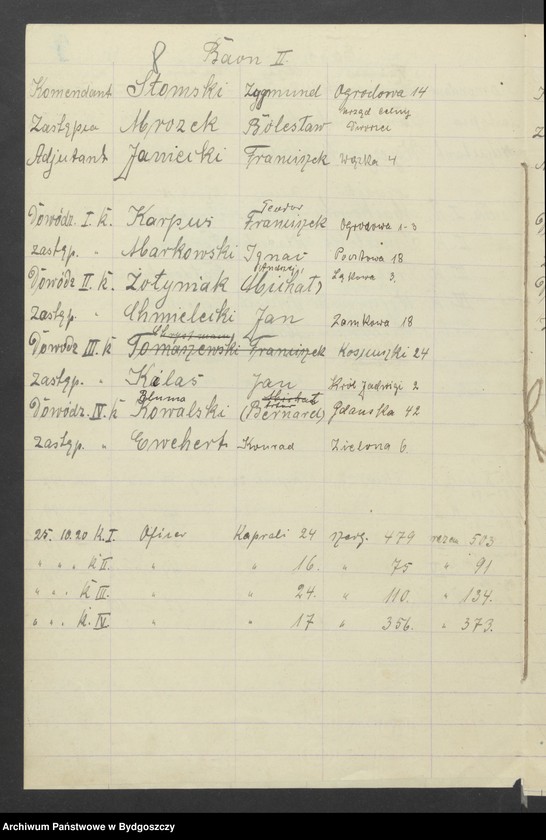 8 Baon II.
Komendant Słomski Zygmund Ogrodowa 14
Urząd celny
Zastępca Mrozek Bolesław Dworzec
Adjutant Janiecki Franciszek Wązka 4
Teodor
Dowódz. I. k. Karpus Franciszek Ogrodowa 1-3
zastęp. " Markowski Ignac Pocztowa 18
Andrzej
Dowódz II. k. Zołyniak (Michał) Łąkowa 3.
zastęp. " Chmielecki Jan Zamkowa 18
Dowódz III. k Tomaszewski Franciszek Kosciuszki 24
zastęp. " Kalas Jan Król Jadwigi 2
Bluma Michał
Dowódz. IV. k Kowalski (Bernard) Gdanska 42
zastęp. " Ewehert Konrad Zielona 6.
25. 10. 20 K. I. Oficer Kaprali 24 szereg. 479 razem 503
" " . K II. " " 16. " 75 " 91
" " . K III. " " 24. " 110. " 134.
" " . K. IV " " 17 " 356. " 373.
Archiwum Państwowe w Bydgoszczy